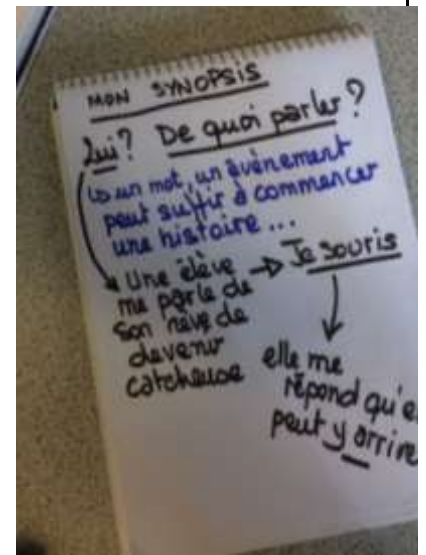 MON SYNOPSIS
Qui? De quoi parler?
↳ un mot, un évènement
peut suffir à commencer
une histoire...
Une élève
me parle de
son rêve de
devenir
catcheuse
→ Je souris
elle me
répond qu'e
peut y arrive